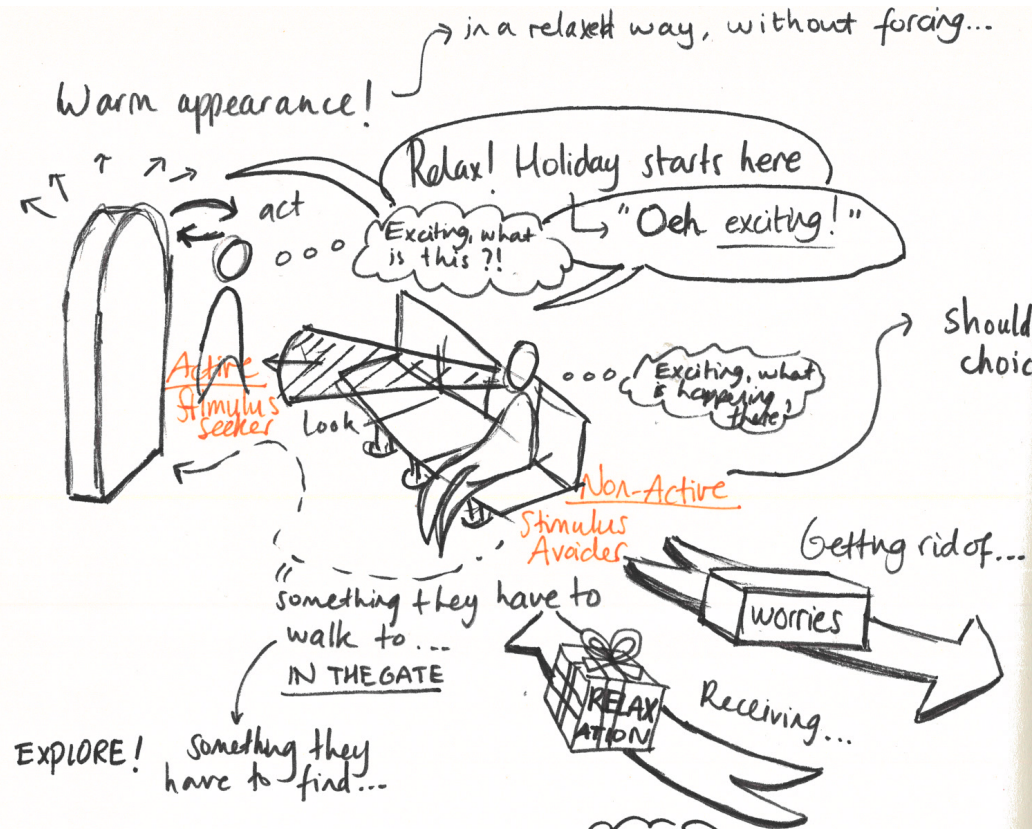 in a relaxed way, without forcing...
Warm appearance!
Relax! Holiday starts here
"Oeh exciting!"
act
Exciting, what
is this ?!
Should
choic
Exciting, what
is happening
there?
Active
Stimulus
seeker
Look
Non-Active
Stimulus
Avoider
Getting rid of...
worries
something they have to
walk to...
IN THE GATE
RELAX
ATION
Receiving...
EXPLORE!
something they
have to find...